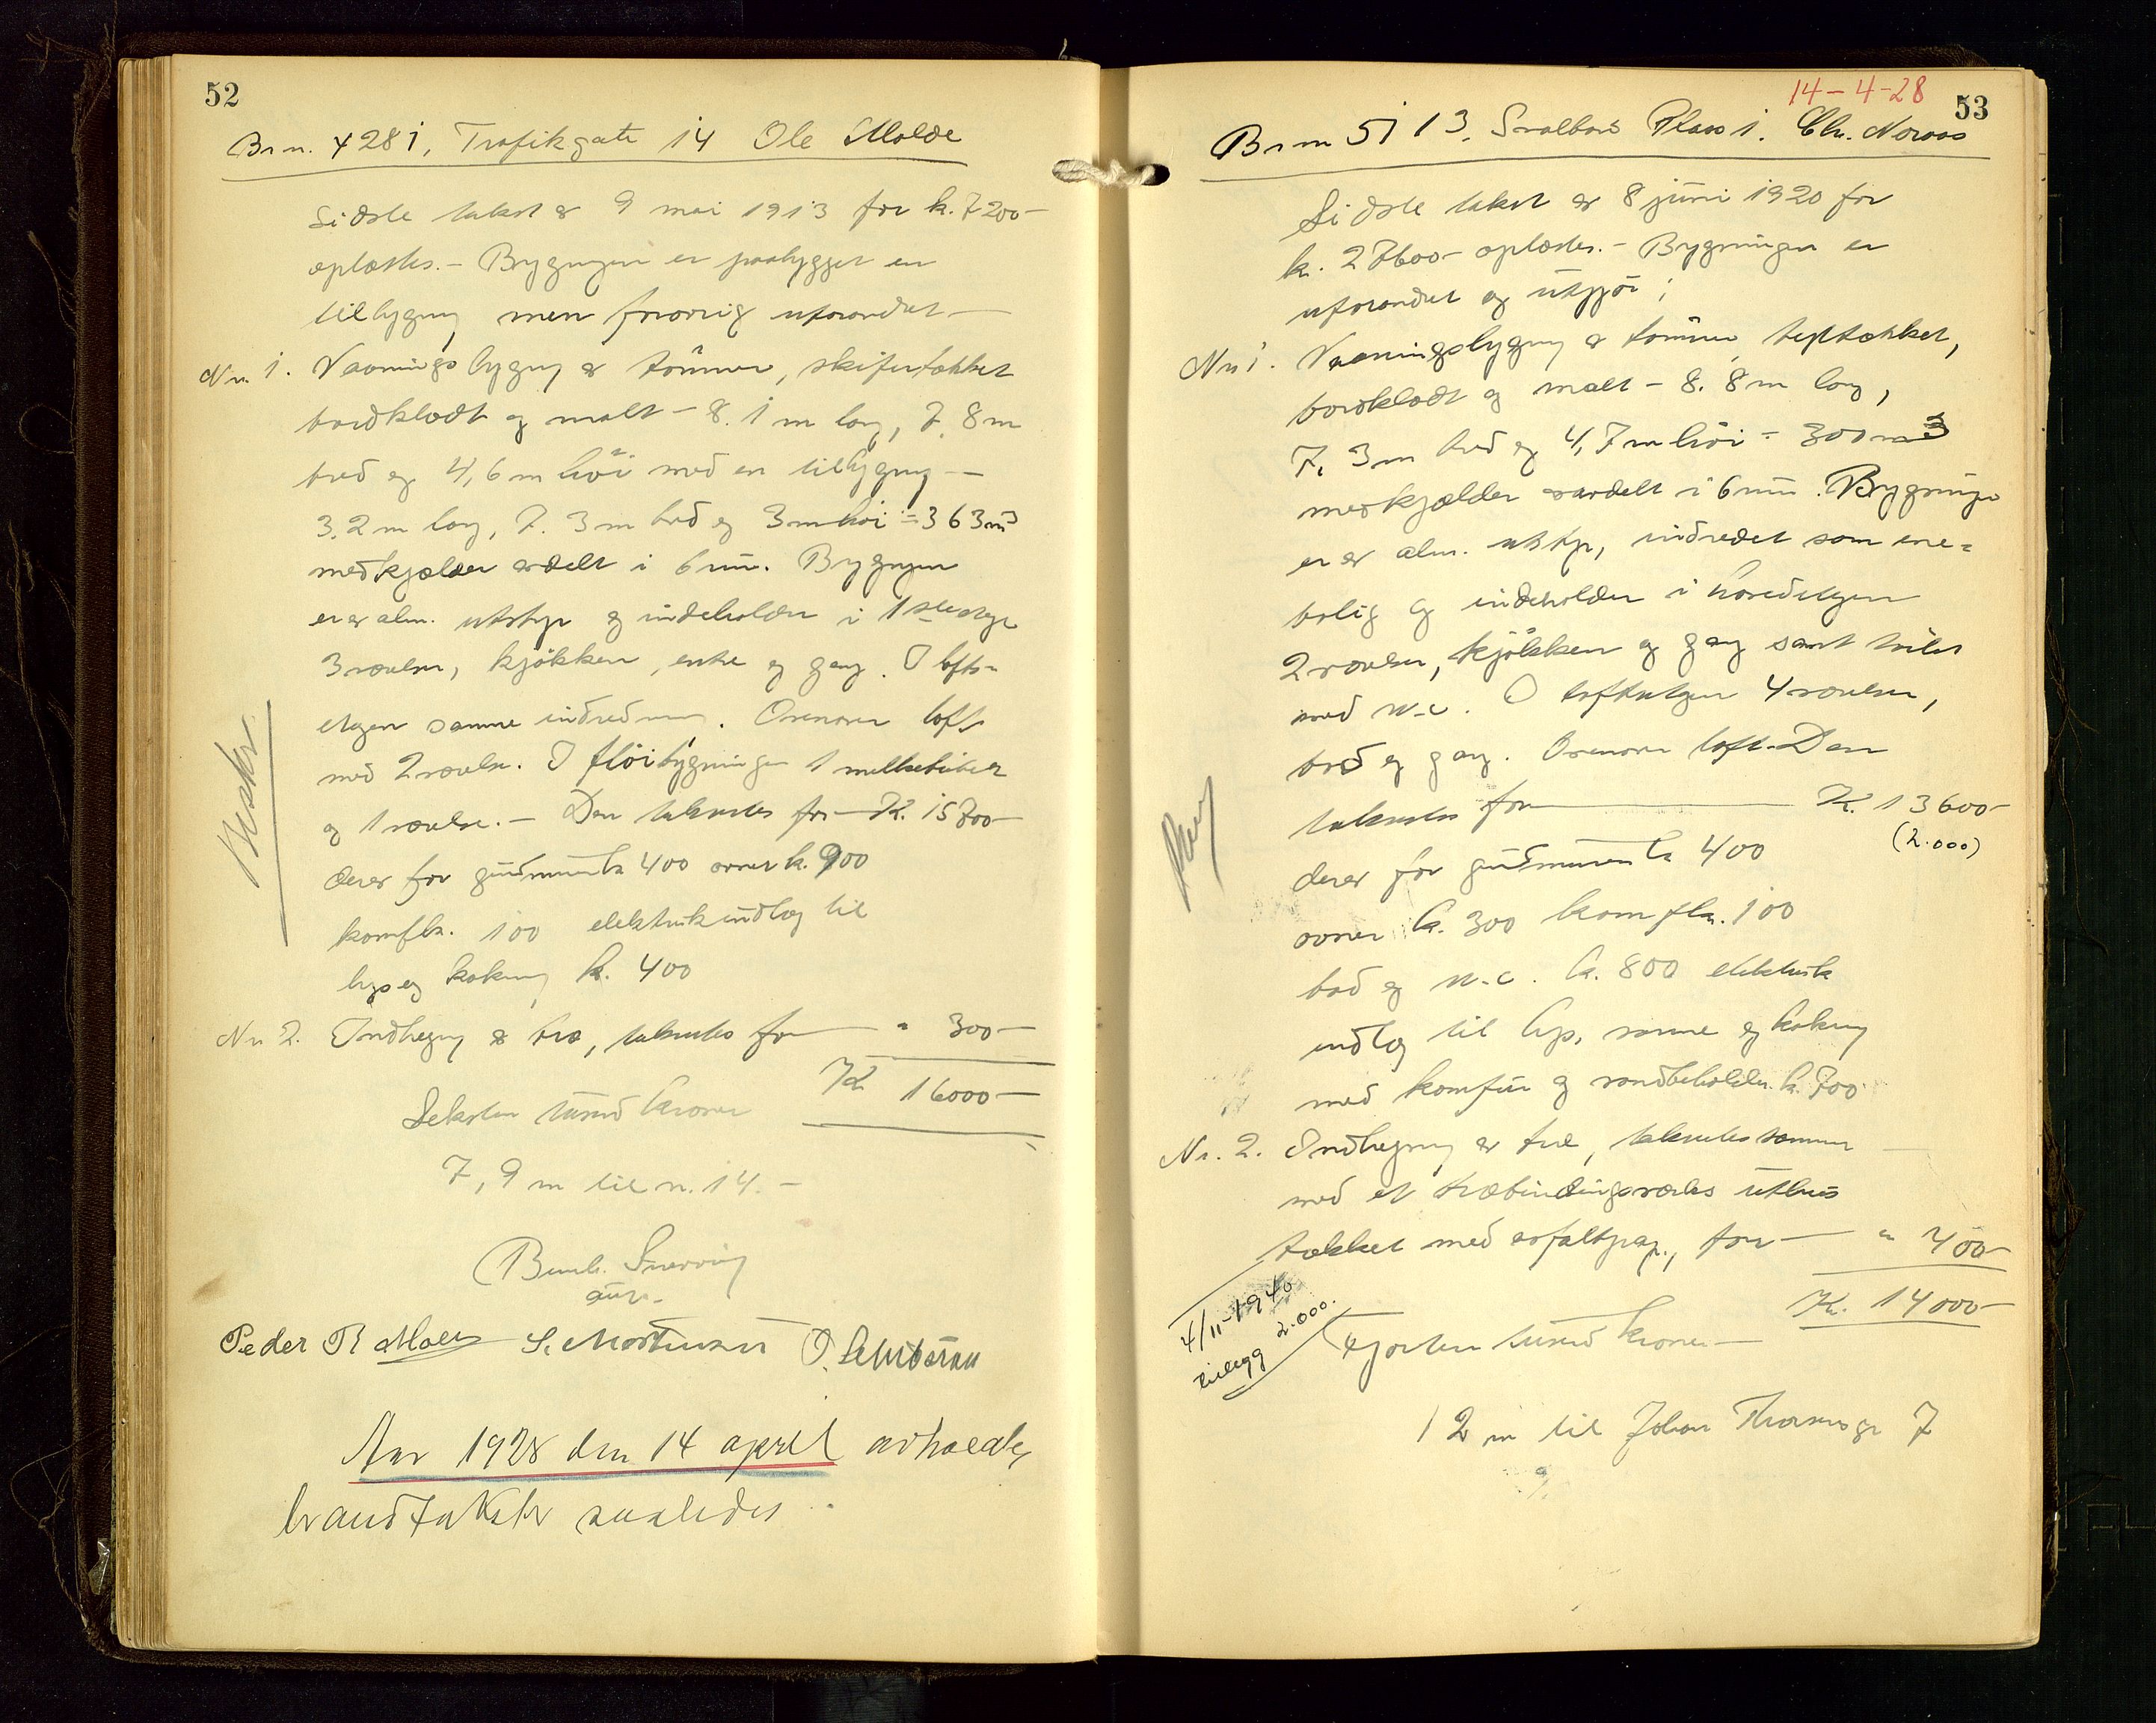 52
Br n. 4281, Trafikgate 14 Ole Molde
Sidste takst er 9 mai 1913 for k. 7200-
oplæstes. - Bygningen er paabygget en
tilbygning men forøvrig uforandret
Nr. 1. Vaaningsbygning av tømmer, skifertækket
bordklædt og malt - 8.1 m lang, 7,8 m
bred og 4,6 m høi med en tilbygning -
3.2 m lang, 7.3 m bred og 3 m høi = 363 m3
med kjælder avdelt i 6 rum. Bygningen
er av alm. utstyr og indeholder i 1ste etage
3 værelser, kjøkken, entre og gang. I lofts-
etagen samme indredning. Ovenover loft
med 2 værelser. I fløibygningen 1 melkebutik
og 1 værelse. - Den takseres for - K. 15700-
derav for grundmuren k 400 ovner k. 900
komf k. 100 elektrisk indlæg til
lys og kokning k. 400
Beskr.
Nr 2. Indhegning av træ, takseres for " 300-
Kr 16000-
Seksten tusend kroner
7,9 m til n. 14. -
Bernh. Sverdrup
Peder R Moen S. Mortensen O.
Aar 1928 den 14 april avholdtes
brandtakster saaledes
53
14-4-28
Br n 5113. Svalbard Plass 1. Chr. Noraas
Sidste takst er 8 juni 1920 for
k. 27600- oplæstes. - Bygningen er
uforandret og utgjør;
Nr 1. Vaaningsbygning av tømmer, tegltækket,
bordklædt og malt - 8.8 m lang,
7,3 m bred og 4,7 m høi = 300 m3
med kjælder avdelt i 6 rum. Bygningen
er av alm. utstyr, indredet som ene-
bolig og indeholder i hovedetagen
2 værelser, kjøkken og gang samt toilet
med w.c. I loftsetagen 4 værelser,
bad og gang. Ovenover loft. Den
takseres for K. 13600-
(2.000)
derav for grundmuren k 400
ovner k. 300 komf k. 100
bad og w.c. k. 800 elektrisk
indlæg til lys, varme og kokning
med komfur og vandbeholder k. 700
Nr. 2. Indhegning av træ, takseres sammen
med et træbindingsverks uthus
tækket med asfaltpap., for " 400-
Kr. 14000-
4/11-1940
tilegg 2.000.
Fjorten tusend kroner -
12 m til Johan Thornes gt 7